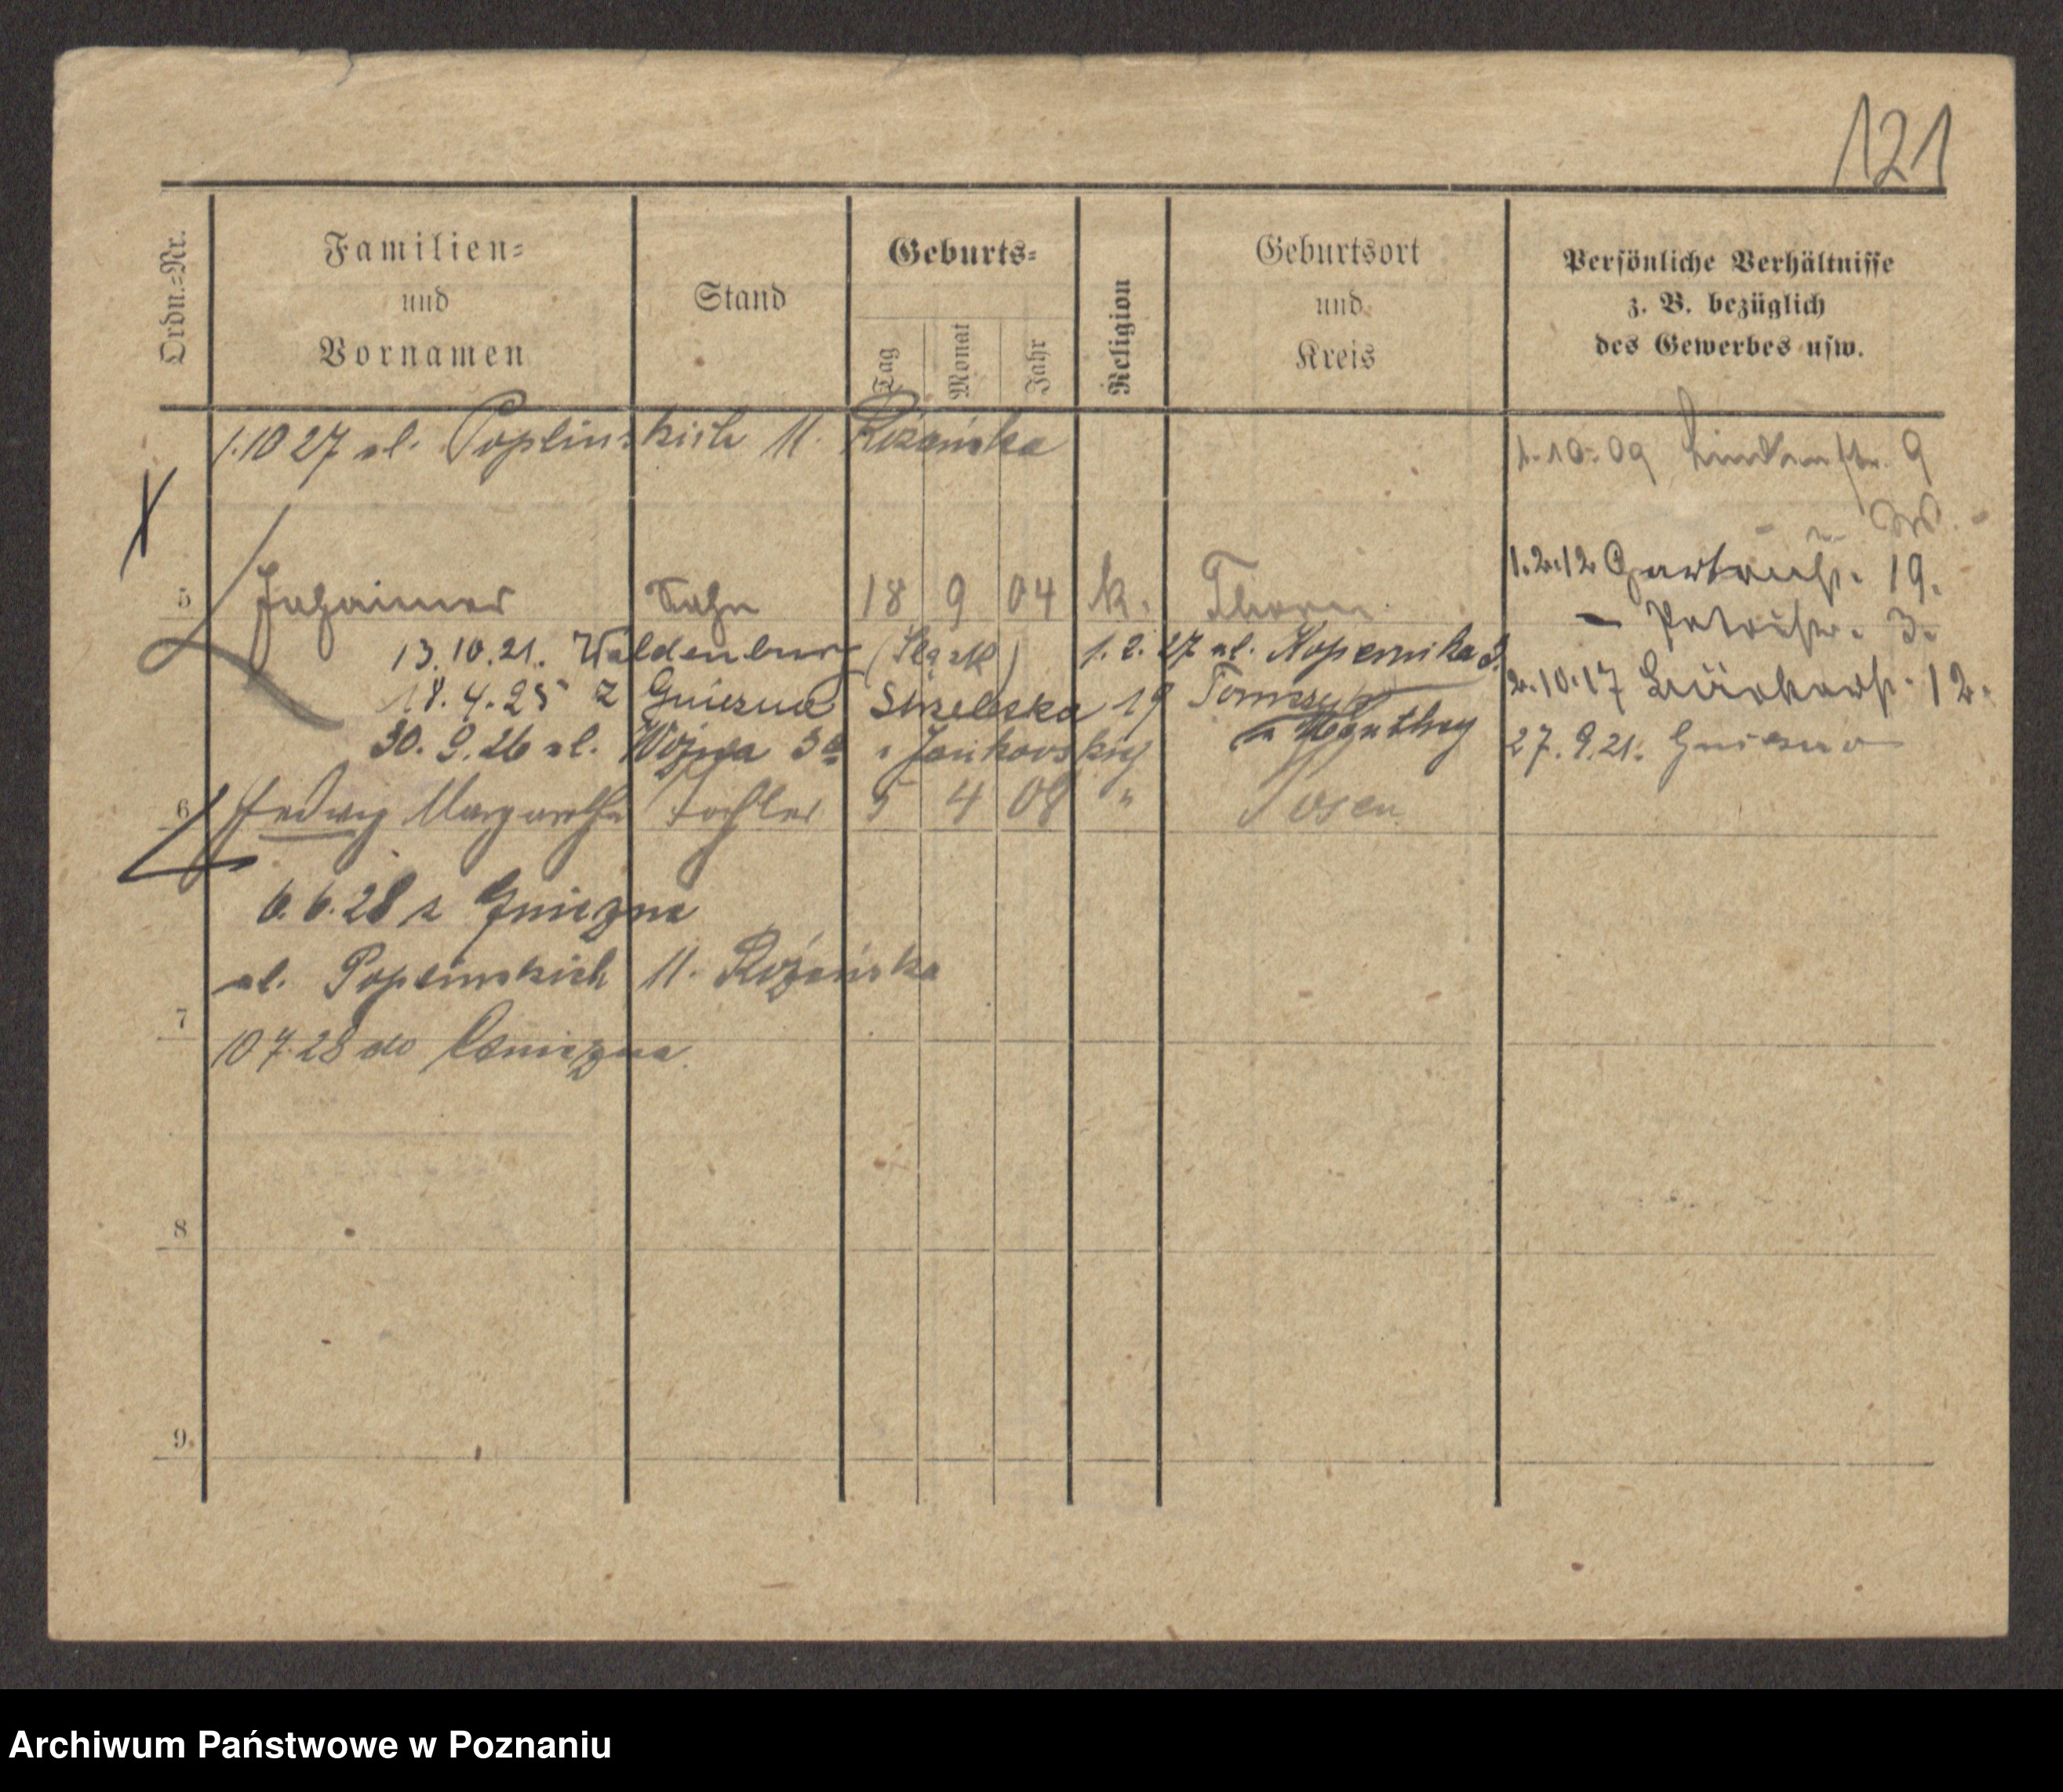 121
Ordn.-Nr.
Familien-
und
Vornamen
Stand
Geburts-
Tag
Monat
Jahr
Religion
Geburtsort
und
Kreis
Persönliche Verhältnisse
z. B. bezüglich
des Gewerbes usw.
1.10 27 ul. Poplinskich 11. Różańska
1.10.09 Lindenstr. 9
1.2.12 Gartenstr. 19.
5 Sohn 18 9 04 k. Thorn
— Petristr. 3.
13.10.21. Waldenburg (Śląsk) 1.2.27 ul. Kopernika 3.
2.10.17 12.
18.4.25 z Gniezna Strzelecka 19
30.9.26 ul. Wożna
27.9.21. Gniezno
6 Hedwig Margarethe Tochter 5 4 08 " Posen
6.6.28 z Gniezna
ul. Poplinskich 11. Różańska
7
10 7.28 do Gniezna.
8
9.
Archiwum Państwowe w Poznaniu